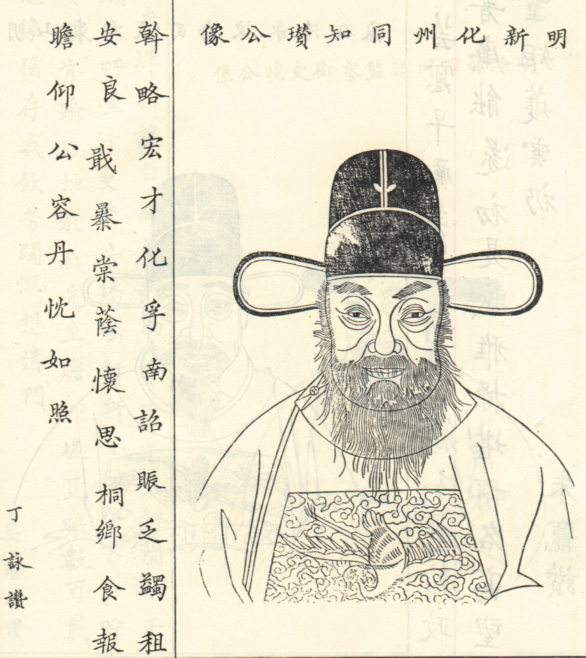 明新化州同知瓚公像
榦略宏才化孚南詔賑乏蠲租
安良戢暴棠蔭懷思桐鄉食報
瞻仰公容丹忱如照
丁詠讚